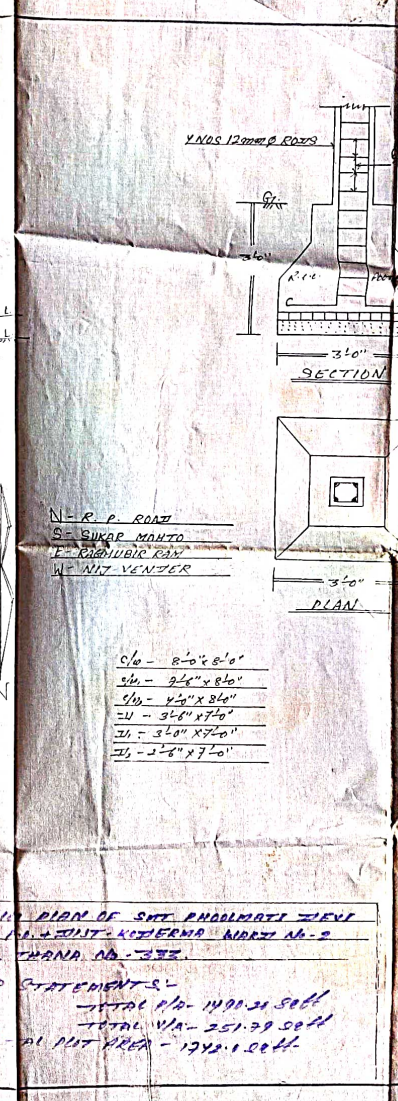 4 NOS 12mm Ø RODS
G.L
3'-0"
R.C.C
C
3'-0"
SECTION
N - R. P. ROAD
S - SUKAR MAHTO
E - RAGHUBIR RAM
W - NIJ VENDER
3'-0"
PLAN
C/W - 8'-0" x 8'-0"
C/W1 - 9'-6" x 8'-0"
C/W2 - 4'-0" x 8'-0"
D - 3'-6" x 7'-0"
D1 - 3'-0" x 7'-0"
D2 - 2'-6" x 7'-0"
PLAN OF SMT PHOOLMATI DEVI
P.O. + DIST - KODERMA WARD No - 2
THANA No - 333.
STATEMENTS :-
TOTAL P/A - 1490.21 Sqft
TOTAL V/A - 251.79 Sqft
AL PLOT AREA - 1742.0 Sqft